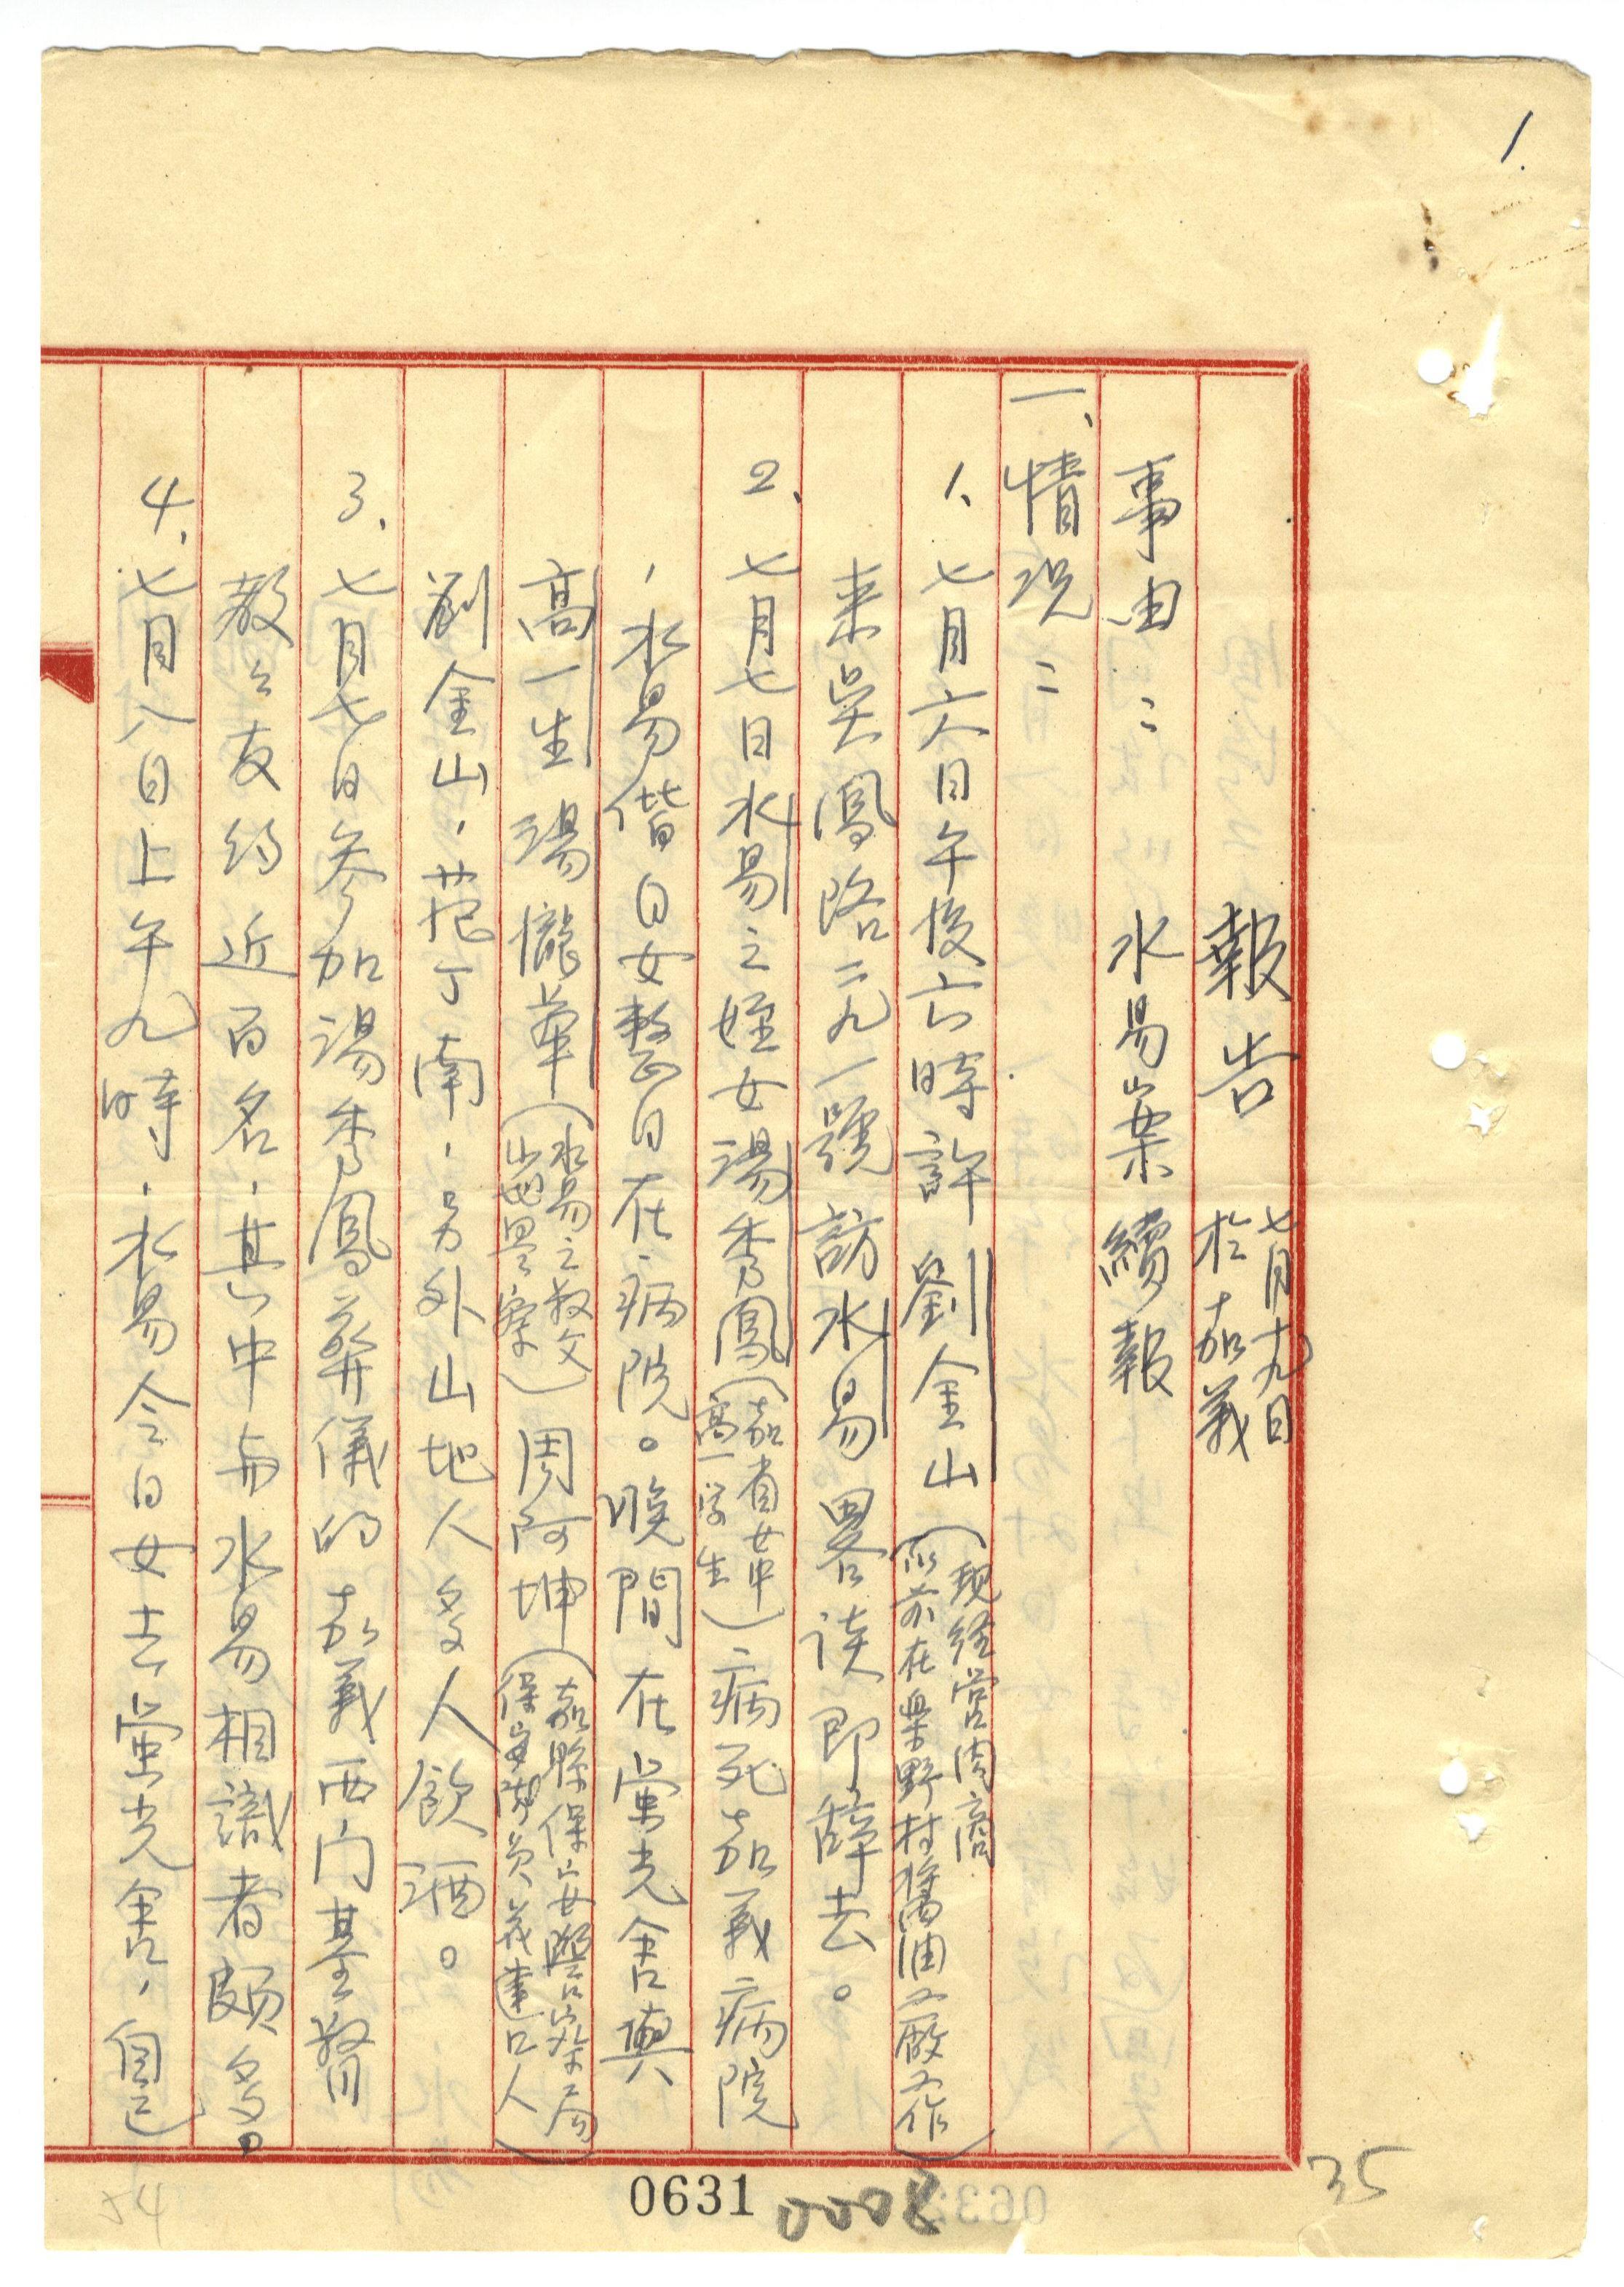 1.
報告 七月十九日
於嘉義
事由： 水易案續報
一、情況：
1、七月六日午後六時許 劉金山（現経営肉商
以前在樂野村醬油工廠工作）
来吳鳳路二九一號訪水易畧谈即辞去。
2、七月七日水易之姪女湯秀鳳（嘉省女中
高一学生）病死嘉義病院
，水易偕日女整日在病院。晚間在螢光舍與
高一生 湯 華（水易之叔父
山地警察）周阿坤（嘉縣保安警察局
人）
劉金山，范丁南，另外山地人多人飲酒。
3、七月七日参加湯秀鳳葬儀的嘉義西门基督
教之友约近百名，其中与水易相識者頗多。
4、七月八日上午九時，水易令日女去螢光舍，自己
0631
0008
35
54